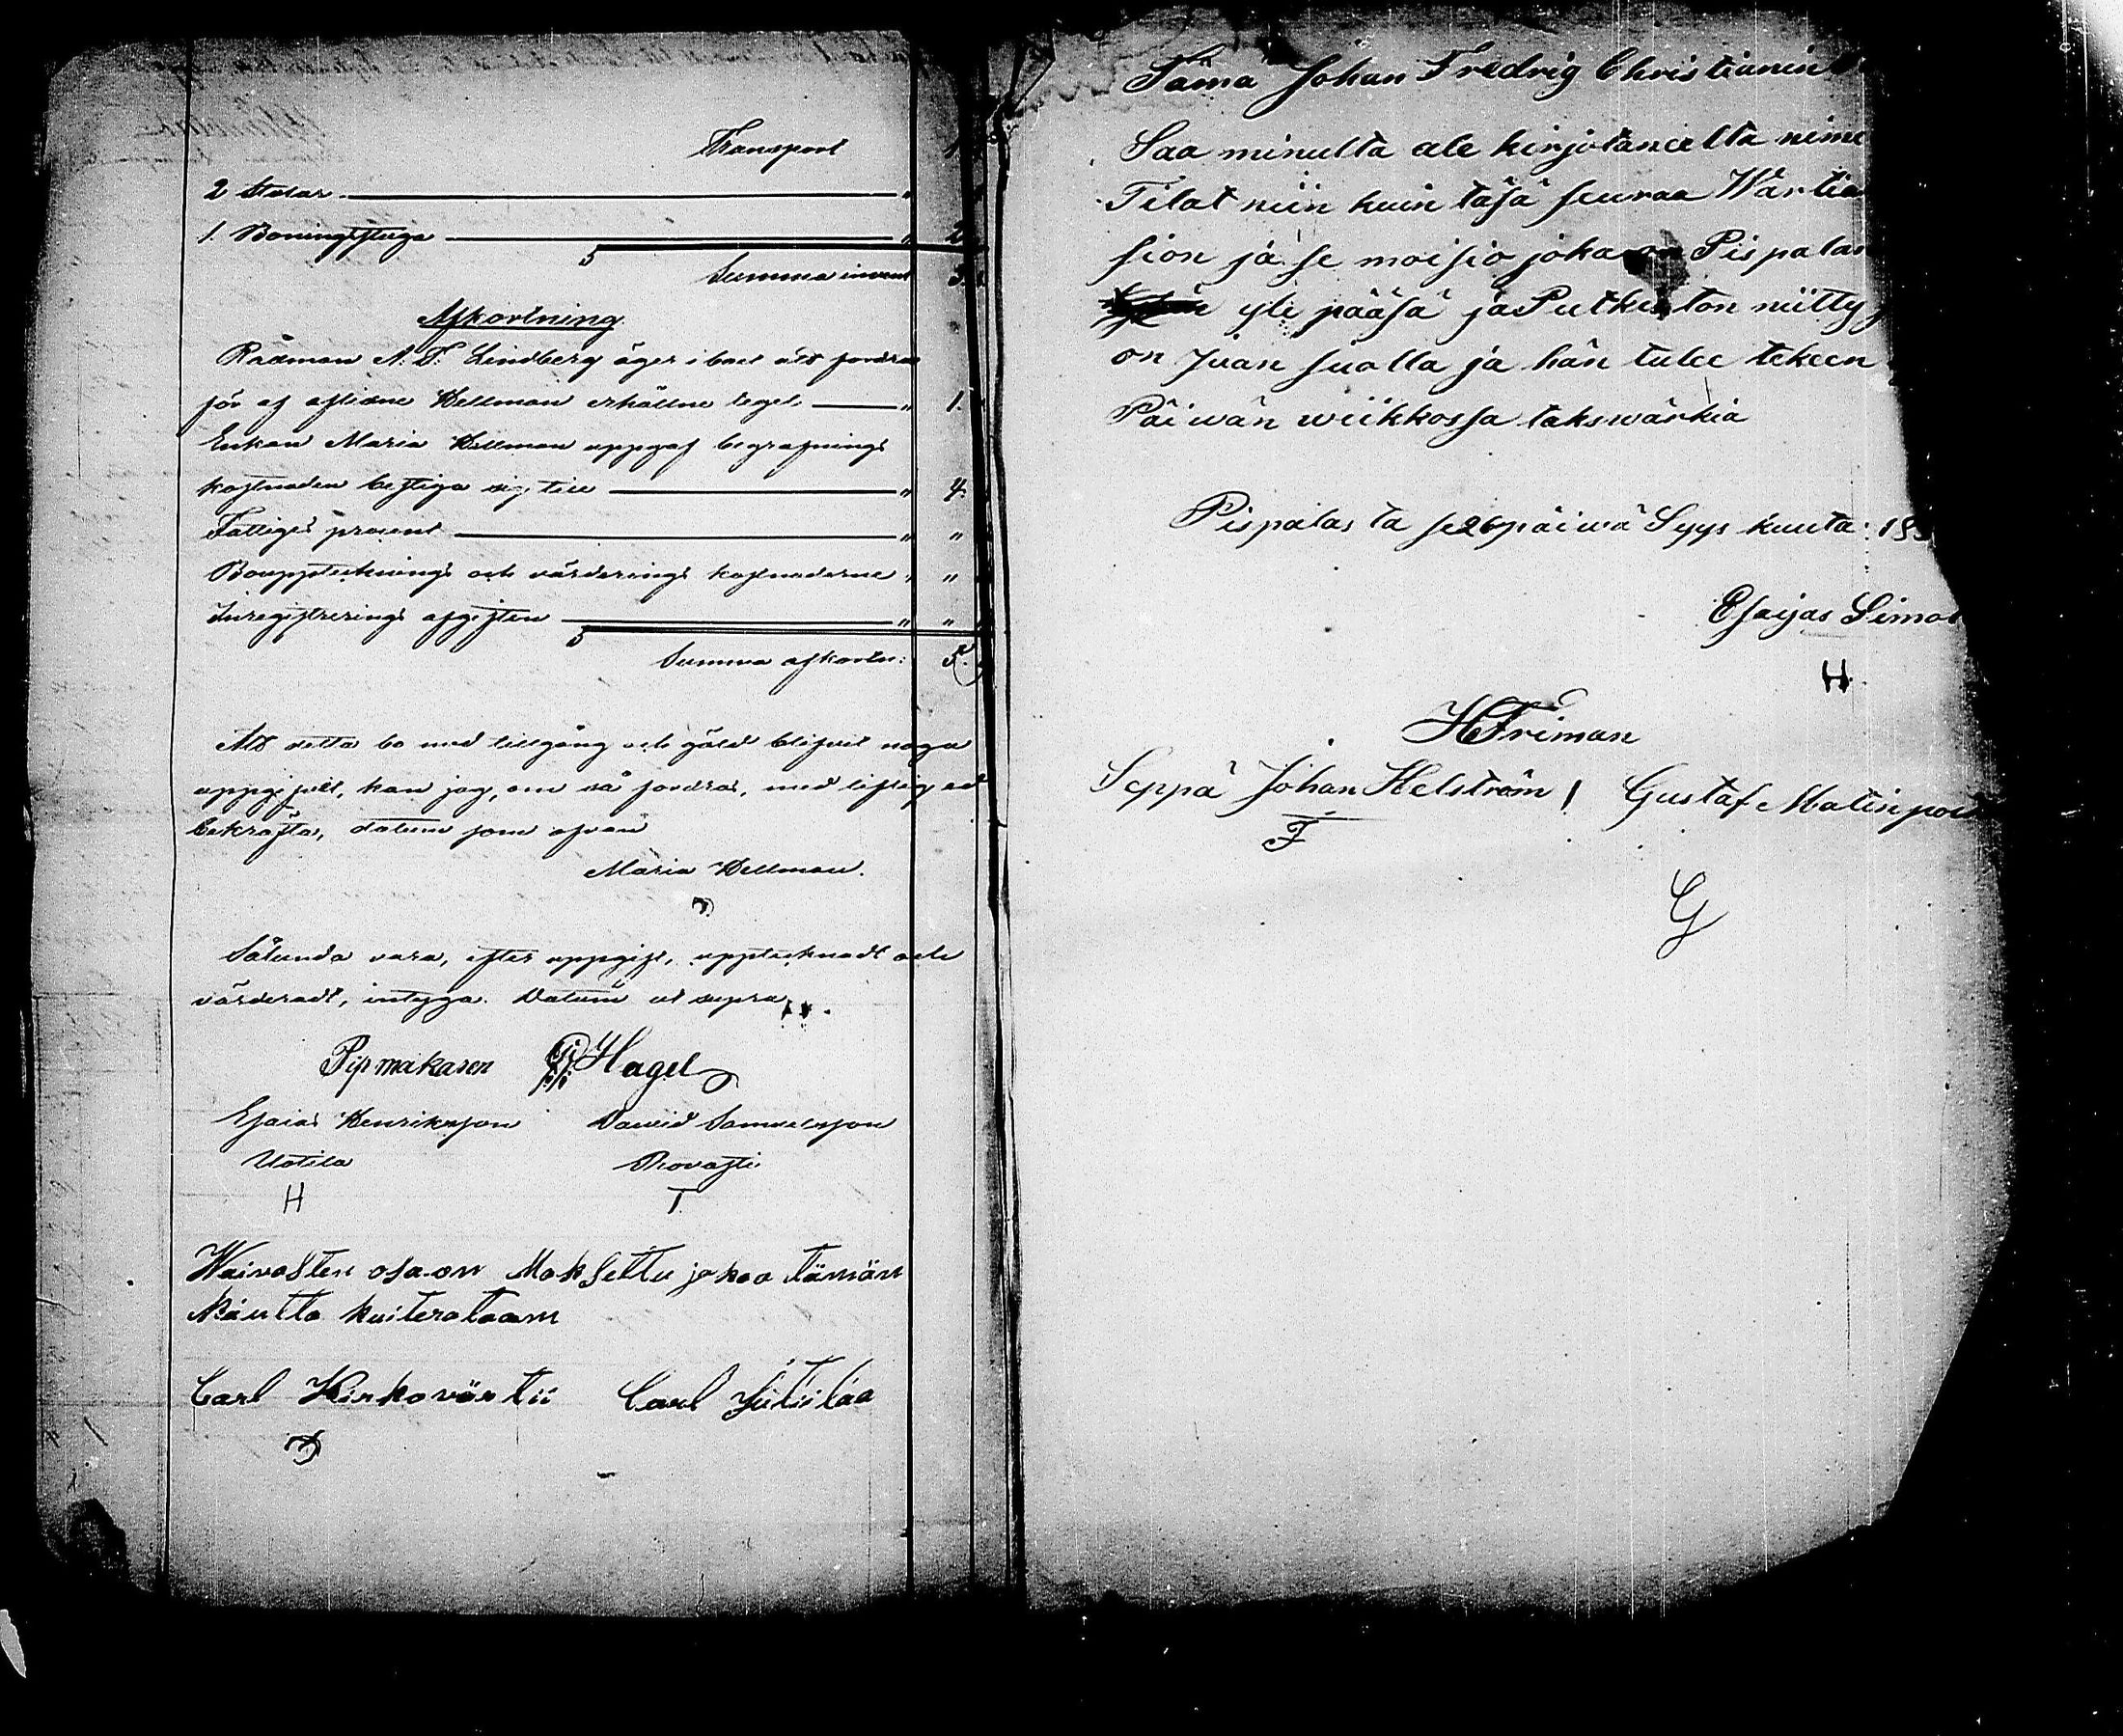 Transport
2 Stolar "
1. Boningsstuga " 2
Summa invent 3.
Afkortning.
Rådman N. F. Lindberg äger i boet att fordra
för af aflidne Hellman erhållne tegel " 1.
Enkan Maria Hellman uppgaf begrafnings
kostnaden bestiga sig till " 4.
Fattiges procent " "
Bouppteknings och värderings kostnaderne " "
Inregistrerings afgiften " "
Summa afkortn: 5.
Att detta bo med tillgång och gäld blifvit noga
uppgifvit, kan jag, om så fordras, med liflig ed
bekräfta, datum som ofvan
Maria Hellman.
Sålunda vara, efter uppgift, upptecknadt och
värderadt, intyga. Datum ut supra.
Pipmakaren Hagel
Esaias Henriksson David Samuelsson
Uotila Provasti
H T
Waivasten osa on Maksettu joka tämän
kautta kuiterataan
Carl Kirkovärtii Carl
Tämä Johan Fredrig Christianin
Saa minulta ale kirjotaneelta nime
Tilat niin kuin täsä seuraa Wärtia
sion ja se moisio joka on Pispalan
yle pääsä ja Putkiston niitty j
on Juan suolla ja hän tulee tekeen
Päiwän wiikkossa takswärkiä
Pispalasta se 26 päiwä Syys kuuta: 18
Esaijas Simol
H
H Friman
Seppä Johan Helström Gustaf Matinpoi
F
G